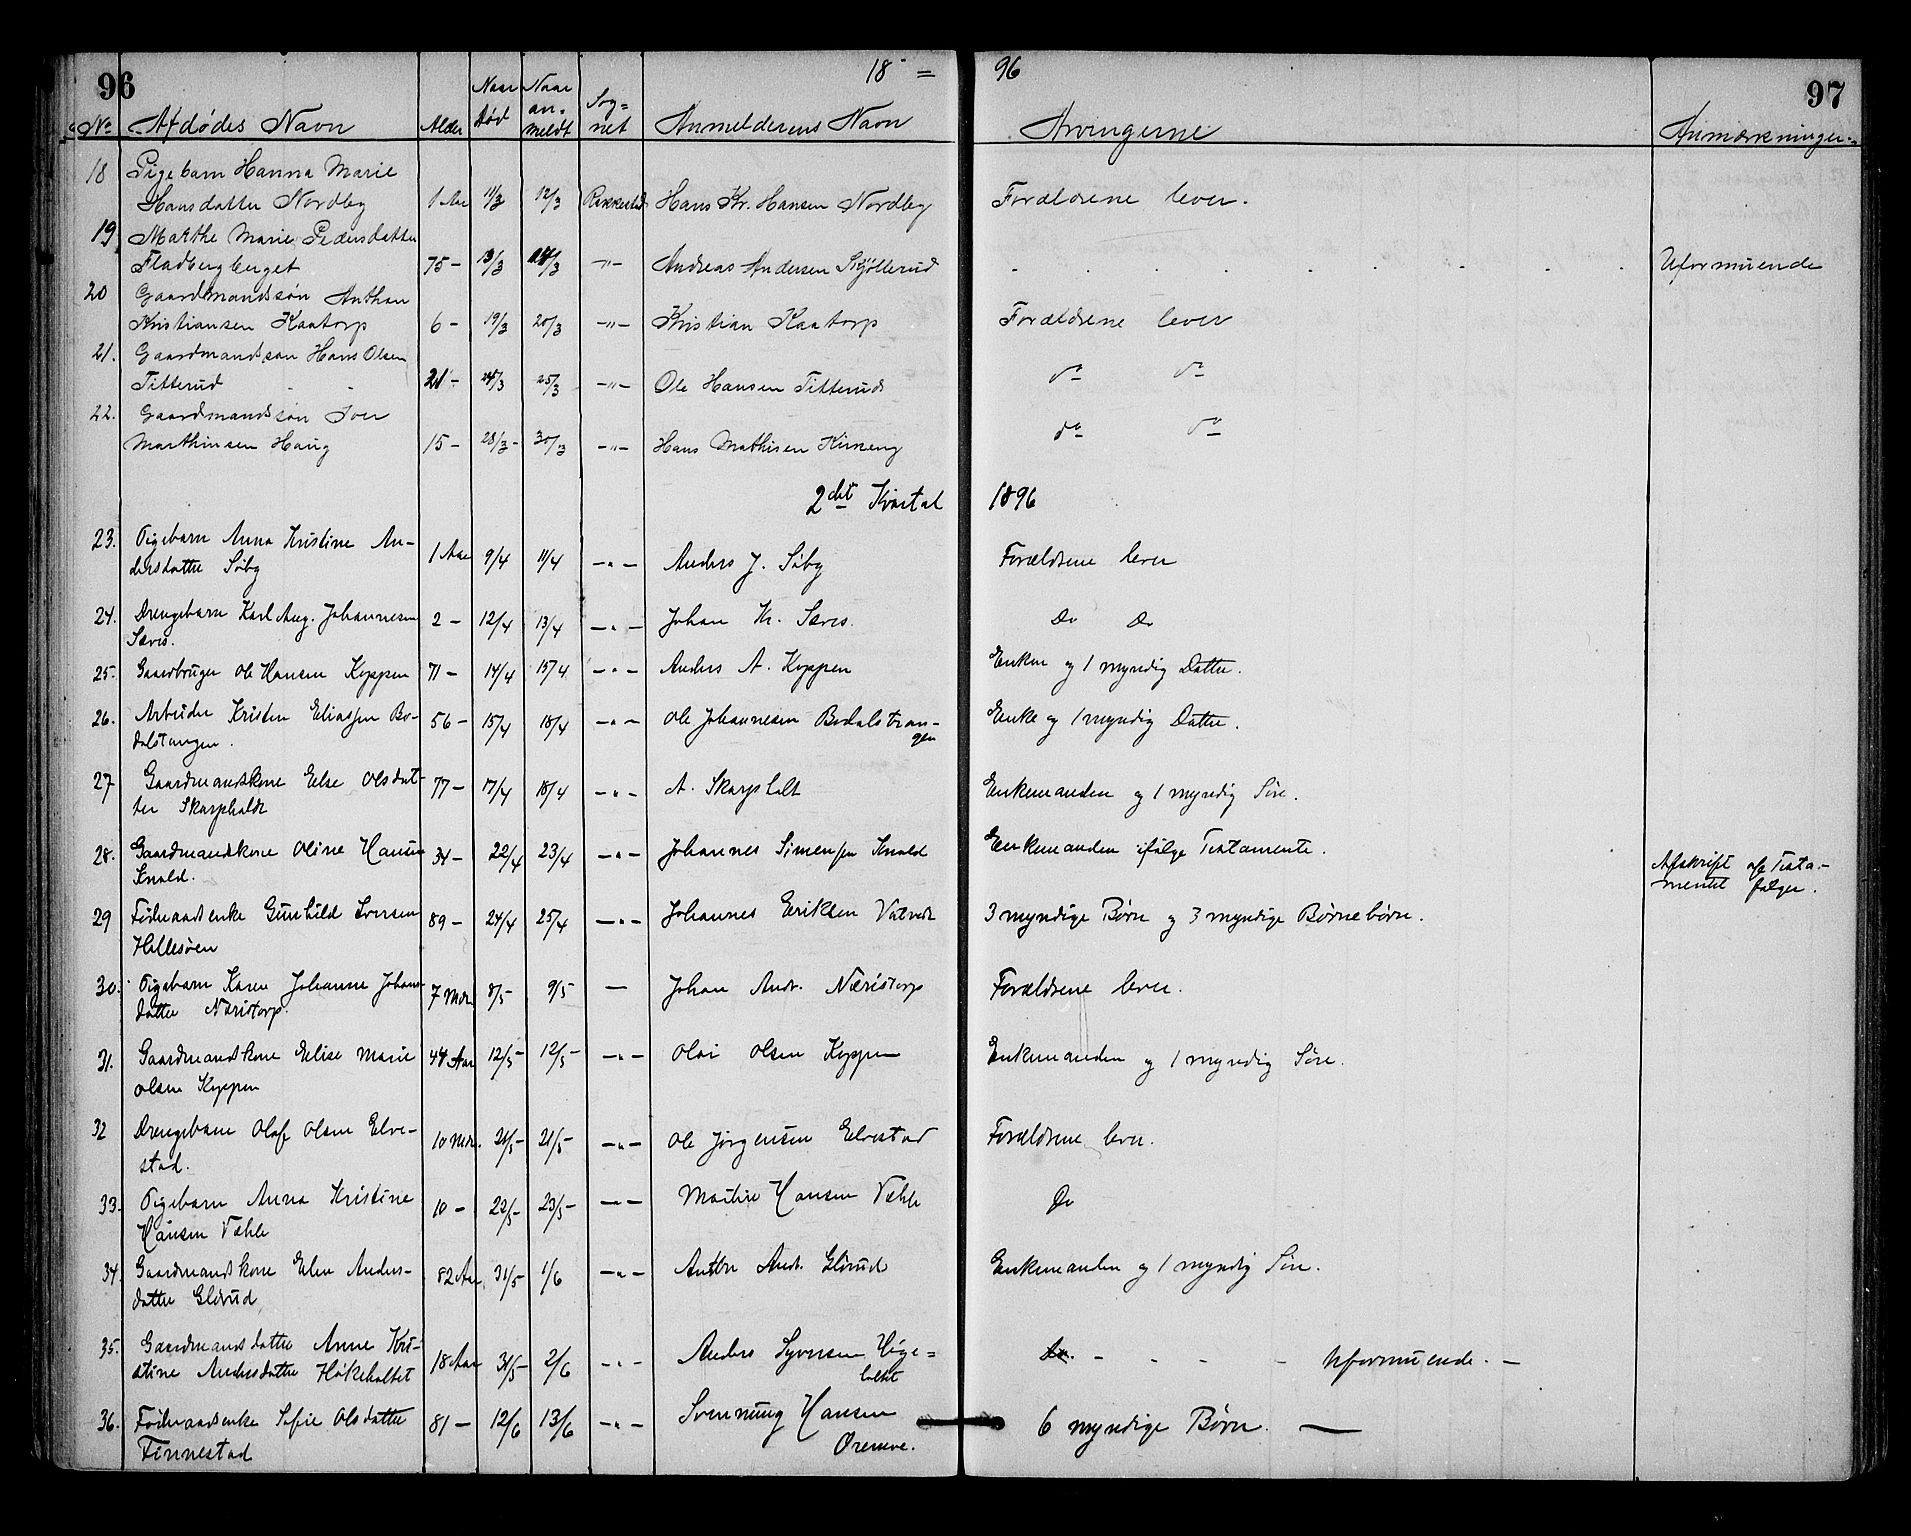 96
18 = 96
97
No Afdødes Navn Alder Naar død Naar anmeldt Sognet Anmelderens Navn Arvingerne Anmærkninger
18 Pigebarn Hanna Marie
Hansdatter Nordby 1 Aar 11/3 12/3 Rakkestad Hans Kr. Hansen Nordby Forældrene lever.
19 Marthe Marie Pedersdatter
Fladbergberget 75 - 13/3 18/3 -"- Andreas Andersen Skjøllerud Uformuende
20 Gaardmandssøn Anthon
Kristiansen Kaatorp 6 - 19/3 20/3 -"- Kristian Kaatorp Forældrene lever
21. Gaardmandssøn Hans Olsen
Titterud 21 - 24/3 25/3 -"- Ole Hansen Titterud do do
22. Gaardmandssøn Iver
Marthinsen Haug 15 - 28/3 - 30/3 -"- Hans Mathisen Kirneng do do
2det Kvartal 1896
23. Pigebarn Anna Kristine An-
dersdatter Søby 1 Aar 9/4 11/4 -"- Anders J. Søby Forældrene lever
24. Drengebarn Karl Aug. Johannesen
Sæves. 2 - 12/4 13/4 -"- Johan Kr. Sæves. Do Do
25. Gaardbruger Ole Hansen Koppen 71 - 14/4 15/4 -"- Anders A. Koppen Enken og 1 myndig Datter.
26. Arbeider Kristen Eliassen Bo-
dalstangen. 56 - 15/4 18/4 -"- Ole Johannesen Bodalstran-
gen Enke og 1 myndig Datter.
27 Gaardmandskone Else Olsdat-
ter Skarpholdt 77 - 17/4 18/4 -"- A. Skarpholt Enkemanden og 1 myndig Søn.
28. Gaardmandskone Oline Hansen
Knold. 34 - 22/4 23/4 -"- Johannes Simensen Knold Enkemanden ifølge Testamente. Afskrift af Testa-
mentet følger.
29 Føderaadsenke Gunhild Iversen
Hallesöen 89 - 24/4 25/4 -"- Johannes Eriksen Vatvedt 3 myndige Børn og 3 myndige Børnebørn.
30. Pigebarn Karen Johanne Johans-
datter Næristorp. 7 Mdr 8/5 - 9/5 - Johan Andr. Næristorp Forældrene lever.
31. Gaardmandskone Elise Marie
Olsen Koppen 44 Aar 12/5 - 12/5 - -"- Olai Olsen Koppen Enkemanden og 1 myndig Søn.
32 Drengebarn Olaf Olsen Elve-
stad. 10 Mdr. 21/5 - 21/5 - -"- Ole Jørgensen Elvestad Forældrene lever.
33. Pigebarn Anna Kristine
Hansen Væhle 10 - 22/5 - 23/5 - -"- Martin Hansen Væhle Do
34. Gaardmandskone Elen Anders-
datter Glørud 82 Aar 31/5 - 1/6 -"- Anton And. Glørud Enkemanden og 1 myndig Søn.
35. Gaardmandsdatter Anne Kri-
stine Andersdatter Høkeholtet 18 Aar 31/5 - 2/6 -"- Anders Syversen Høge=
holtet Do. - - - - - Uformuende. -
36. Føderaadsenke Sofie Olsdatter
Finnestad 81 - 12/6 13/6 -"- Svennung Hansen
Ørenve. 6 myndige Børn. -